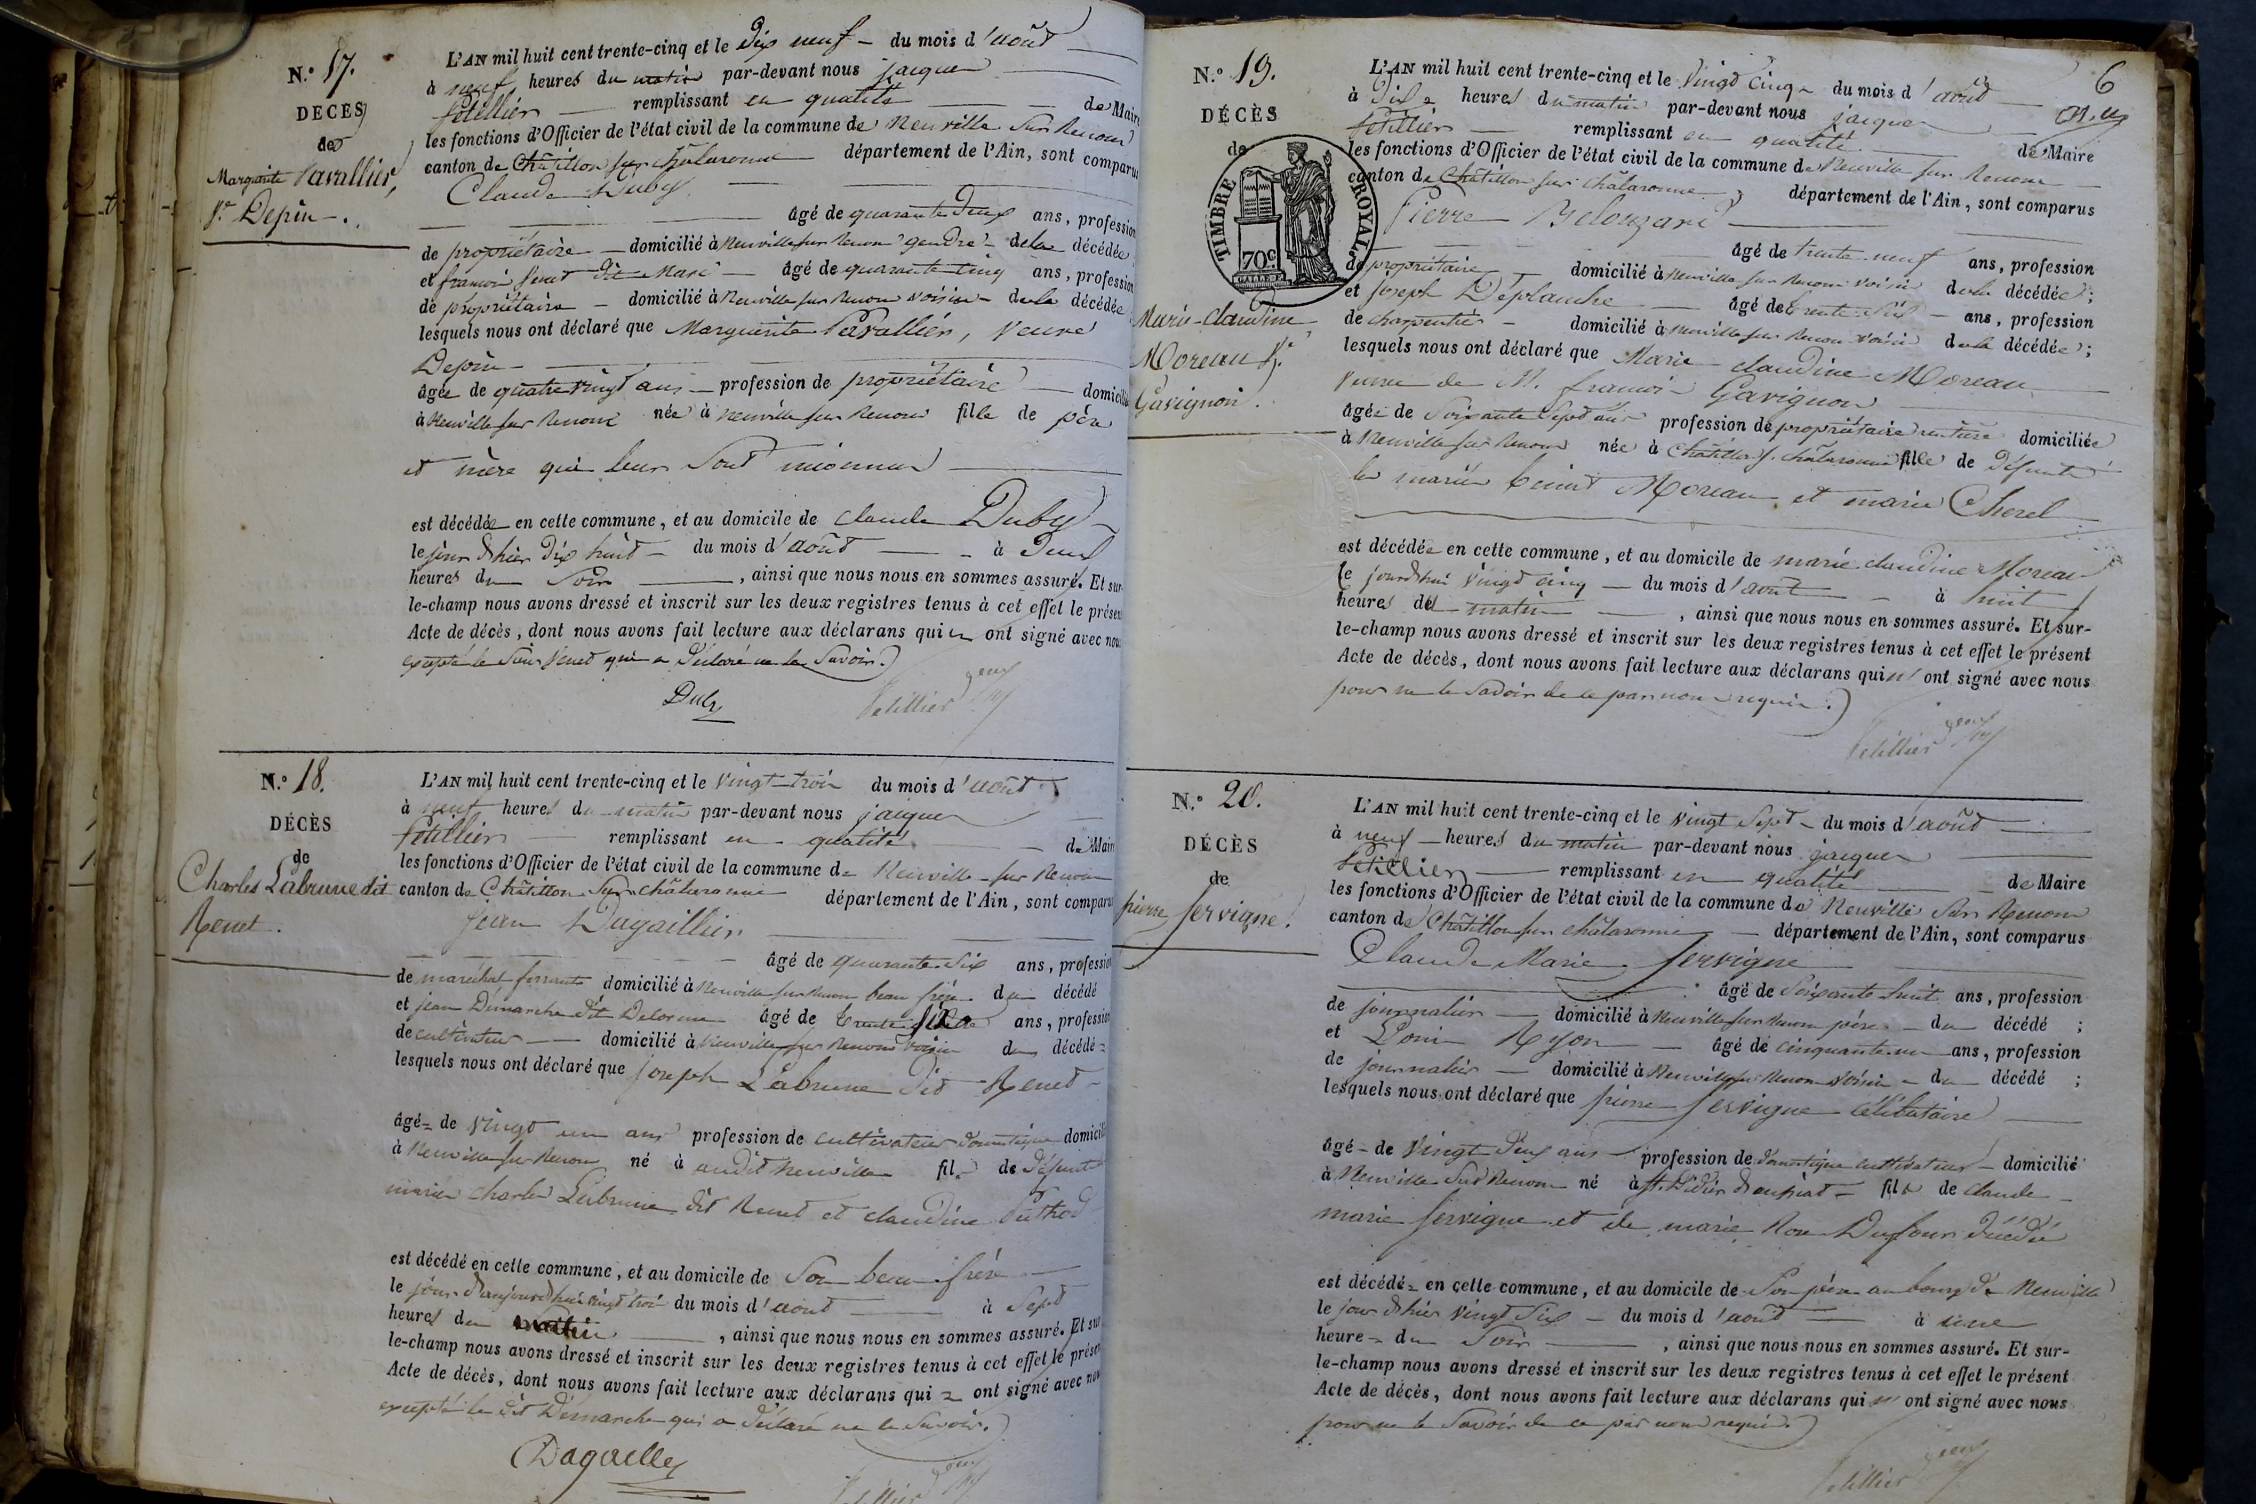 N.º 17.
DÉCÈS
de
Marguerite Pavallier,
V.e Depin
L'AN mil huit cent trente-cinq et le dix neuf du mois d'août
à neuf heures du matin par-devant nous jacques
remplissant en qualité de Maire
les fonctions d'Officier de l'état civil de la commune de Neuville sur Renom
canton de Châtillon sur Chalaronne département de l'Ain, sont comparus
Claude Duby
âgé de quarante deux ans, profession
de propriétaire domicilié à Neuville sur Renom gendre de la décédée
et françois dit âgé de quarante cinq ans, profession
de propriétaire domicilié à Neuville sur Renom voisin de la décédée
lesquels nous ont déclaré que Marguerite veuve
Depin
âgée de quatre vingt ans profession de propriétaire domicilié
à Neuville sur Renom née à Neuville sur Renom fille de père
et mère qui leur sont inconnus
est décédée en cette commune, et au domicile de Claude Duby
le jour d'hier dix huit du mois d'août à deux
heures du soir, ainsi que nous nous en sommes assuré. Et sur-
le-champ nous avons dressé et inscrit sur les deux registres tenus à cet effet le présent
Acte de décès, dont nous avons fait lecture aux déclarans qui ont signé avec nous
excepté le sieur qui a déclaré ne le savoir.
Duby
N.º 18.
DÉCÈS
de
Charles Labrune dit
Renet.
L'AN mil huit cent trente-cinq et le vingt-trois du mois d'août
à neuf heures du matin par-devant nous jacques
remplissant en qualité de Maire
les fonctions d'Officier de l'état civil de la commune de Neuville sur Renom
canton de Châtillon sur Chalaronne département de l'Ain, sont comparus
jean Dugaillier
âgé de quarante six ans, profession
de maréchal ferrant domicilié à Neuville sur Renom beau frère du décédé
et jean Démarche dit Delorme âgé de trente ans, profession
de cultivateur domicilié à Neuville sur Renom voisin du décédé
lesquels nous ont déclaré que joseph Labrune dit Renet
âgé de vingt un ans profession de cultivateur domestique domicilié
à Neuville sur Renom né à audit Neuville fils de défunts
mariés charles Labrune dit Renet et claudine Puthod
est décédé en cette commune, et au domicile de son beau frère
le jour d'aujourd'hui vingt trois du mois d'août à sept
heures du matin, ainsi que nous nous en sommes assuré. Et sur
le-champ nous avons dressé et inscrit sur les deux registres tenus à cet effet le présent
Acte de décès, dont nous avons fait lecture aux déclarans qui ont signé avec nous
excepté le dit Démarche qui a déclaré ne le savoir.
6
N.º 19.
DÉCÈS
de
TIMBRE ROYAL
70 c
Marie-claudine
Moreau V.e
Gavignon.
L'AN mil huit cent trente-cinq et le vingt cinq du mois d'août
à dix heures du matin par-devant nous jacques
remplissant en qualité de Maire
les fonctions d'Officier de l'état civil de la commune de Neuville sur Renom
canton de Châtillon sur Chalaronne département de l'Ain, sont comparus
Pierre
âgé de trente neuf ans, profession
de propriétaire domicilié à Neuville sur Renom voisin de la décédée;
et joseph Déplanche âgé de trente ans, profession
de charpentier domicilié à Neuville sur Renom voisin de la décédée;
lesquels nous ont déclaré que Marie claudine Moreau
veuve de M. françois Gavignon
âgée de soixante sept ans profession de propriétaire rentière domiciliée
à Neuville sur Renom née à Châtillon s. Chalaronne fille de défunts
les mariés benoit Moreau et marie Cherel
est décédée en cette commune, et au domicile de marie claudine Moreau
le jourd'hui vingt cinq du mois d'août à huit
heures du matin, ainsi que nous nous en sommes assuré. Et sur-
le-champ nous avons dressé et inscrit sur les deux registres tenus à cet effet le présent
Acte de décès, dont nous avons fait lecture aux déclarans qui n'ont signé avec nous
pour ne le savoir de ce par nous requis.
N.º 20.
DÉCÈS
de
pierre Servigne.
L'AN mil huit cent trente-cinq et le vingt sept du mois d'août
à neuf heures du matin par-devant nous jacques
remplissant en qualité de Maire
les fonctions d'Officier de l'état civil de la commune de Neuville sur Renom
canton de Châtillon sur Chalaronne département de l'Ain, sont comparus
Claude Marie Servigne
âgé de soixante huit ans, profession
de journalier domicilié à Neuville sur Renom père du décédé;
et Reyon âgé de cinquante un ans, profession
de journalier domicilié à Neuville sur Renom voisin du décédé;
lesquels nous ont déclaré que pierre Servigne célibataire
âgé de vingt deux ans profession de domestique cultivateur domicilié
à Neuville sur Renom né à St. Didier d'aussiat fils de claude
marie Servigne et de marie Dufour
est décédé en cette commune, et au domicile de son père au bourg de Neuville
le jour d'hier vingt six du mois d'août à une
heure du soir, ainsi que nous nous en sommes assuré. Et sur-
le-champ nous avons dressé et inscrit sur les deux registres tenus à cet effet le présent
Acte de décès, dont nous avons fait lecture aux déclarans qui n'ont signé avec nous
pour ne le savoir de ce par nous requis.